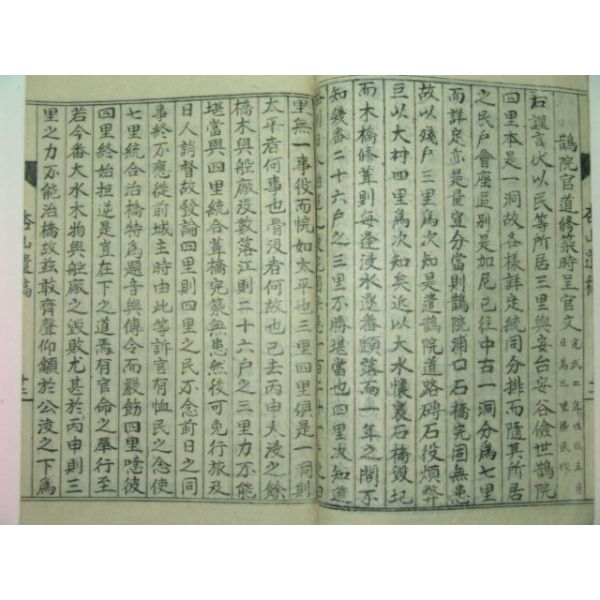 鵲院官道修築時呈官文 光武二年戊戌五月日爲三里居民作
右謹言伏以民等所居三里與安台安谷倹世鵲院
四里本是一洞故各樣詳定統同分排而隨其所居
之民戶會座區別是加尼已往中古一洞分爲七里
而詳定亦是量宜分當則鵲院浦口石橋完固無患
故以殘戶三里爲次知是遣鵲院道路磚石役煩弊
巨以大村四里爲次知矣近以大水懷襄石橋毁圮
而木橋修葺則每逢浸水逐番頹落而一年之間不
知幾番二十六戶之三里不勝堪當也四里次知道
里無一事役而院如太平也三里四里俱是一洞則
太平者何事也㫺沒者何故也已去丙申大浸之餘
橋木與舩廠沒數落江則二十六戶之三里力不能
堪當與四里統合葺橋完築無患然後可免行旅及
日人誚督故發論四里則四里之民不念前日之同
事終不應從前城主時由此等訴官有恤民之念使
七里統合治橋特爲題音與傳令而嚴飭四里噫彼
四里終始拒逆是豈在下之道焉有官命之奉行至
若今番大水木物與舩廠之毁敗尤甚於丙申則三
里之力不能治橋故玆敢齊聲仰籲於公洟之下爲
杏山遺稿
十二